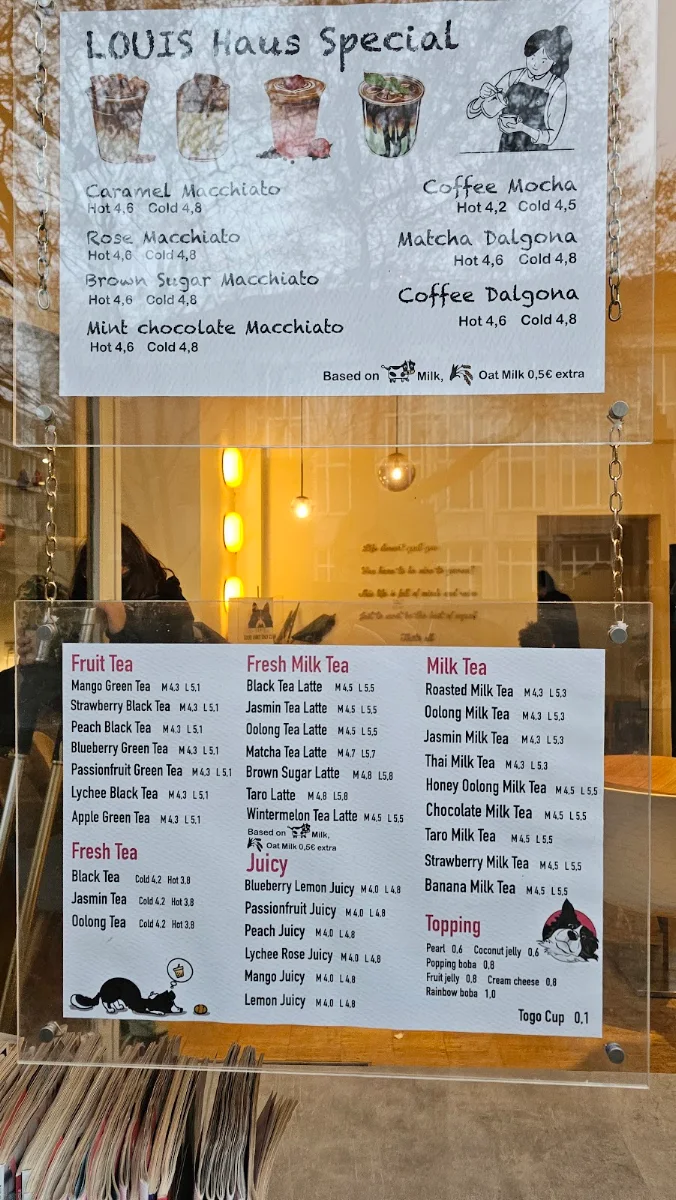 LOUIS Haus Special
Caramel Macchiato
Hot 4,6 Cold 4,8
Rose Macchiato
Hot 4,6 Cold 4,8
Brown Sugar Macchiato
Hot 4,6 Cold 4,8
Mint chocolate Macchiato
Hot 4,6 Cold 4,8
Coffee Mocha
Hot 4,2 Cold 4,5
Matcha Dalgona
Hot 4,6 Cold 4,8
Coffee Dalgona
Hot 4,6 Cold 4,8
Based on Milk, Oat Milk 0,5€ extra
Fruit Tea
Mango Green Tea M 4,3 L 5,1
Strawberry Black Tea M 4,3 L 5,1
Peach Black Tea M 4,3 L 5,1
Blueberry Green Tea M 4,3 L 5,1
Passionfruit Green Tea M 4,3 L 5,1
Lychee Black Tea M 4,3 L 5,1
Apple Green Tea M 4,3 L 5,1
Fresh Tea
Black Tea Cold 4,2 Hot 3,8
Jasmin Tea Cold 4,2 Hot 3,8
Oolong Tea Cold 4,2 Hot 3,8
Fresh Milk Tea
Black Tea Latte M 4,5 L 5,5
Jasmin Tea Latte M 4,5 L 5,5
Oolong Tea Latte M 4,5 L 5,5
Matcha Tea Latte M 4,7 L 5,7
Brown Sugar Latte M 4,8 L 5,8
Taro Latte M 4,8 L 5,8
Wintermelon Tea Latte M 4,5 L 5,5
Based on Milk,
Oat Milk 0,5€ extra
Juicy
Blueberry Lemon Juicy M 4,0 L 4,8
Passionfruit Juicy M 4,0 L 4,8
Peach Juicy M 4,0 L 4,8
Lychee Rose Juicy M 4,0 L 4,8
Mango Juicy M 4,0 L 4,8
Lemon Juicy M 4,0 L 4,8
Milk Tea
Roasted Milk Tea M 4,3 L 5,3
Oolong Milk Tea M 4,3 L 5,3
Jasmin Milk Tea M 4,3 L 5,3
Thai Milk Tea M 4,3 L 5,3
Honey Oolong Milk Tea M 4,5 L 5,5
Chocolate Milk Tea M 4,5 L 5,5
Taro Milk Tea M 4,5 L 5,5
Strawberry Milk Tea M 4,5 L 5,5
Banana Milk Tea M 4,5 L 5,5
Topping
Pearl 0,6 Coconut jelly 0,6
Popping boba 0,8
Fruit jelly 0,8 Cream cheese 0,8
Rainbow boba 1,0
Togo Cup 0.1